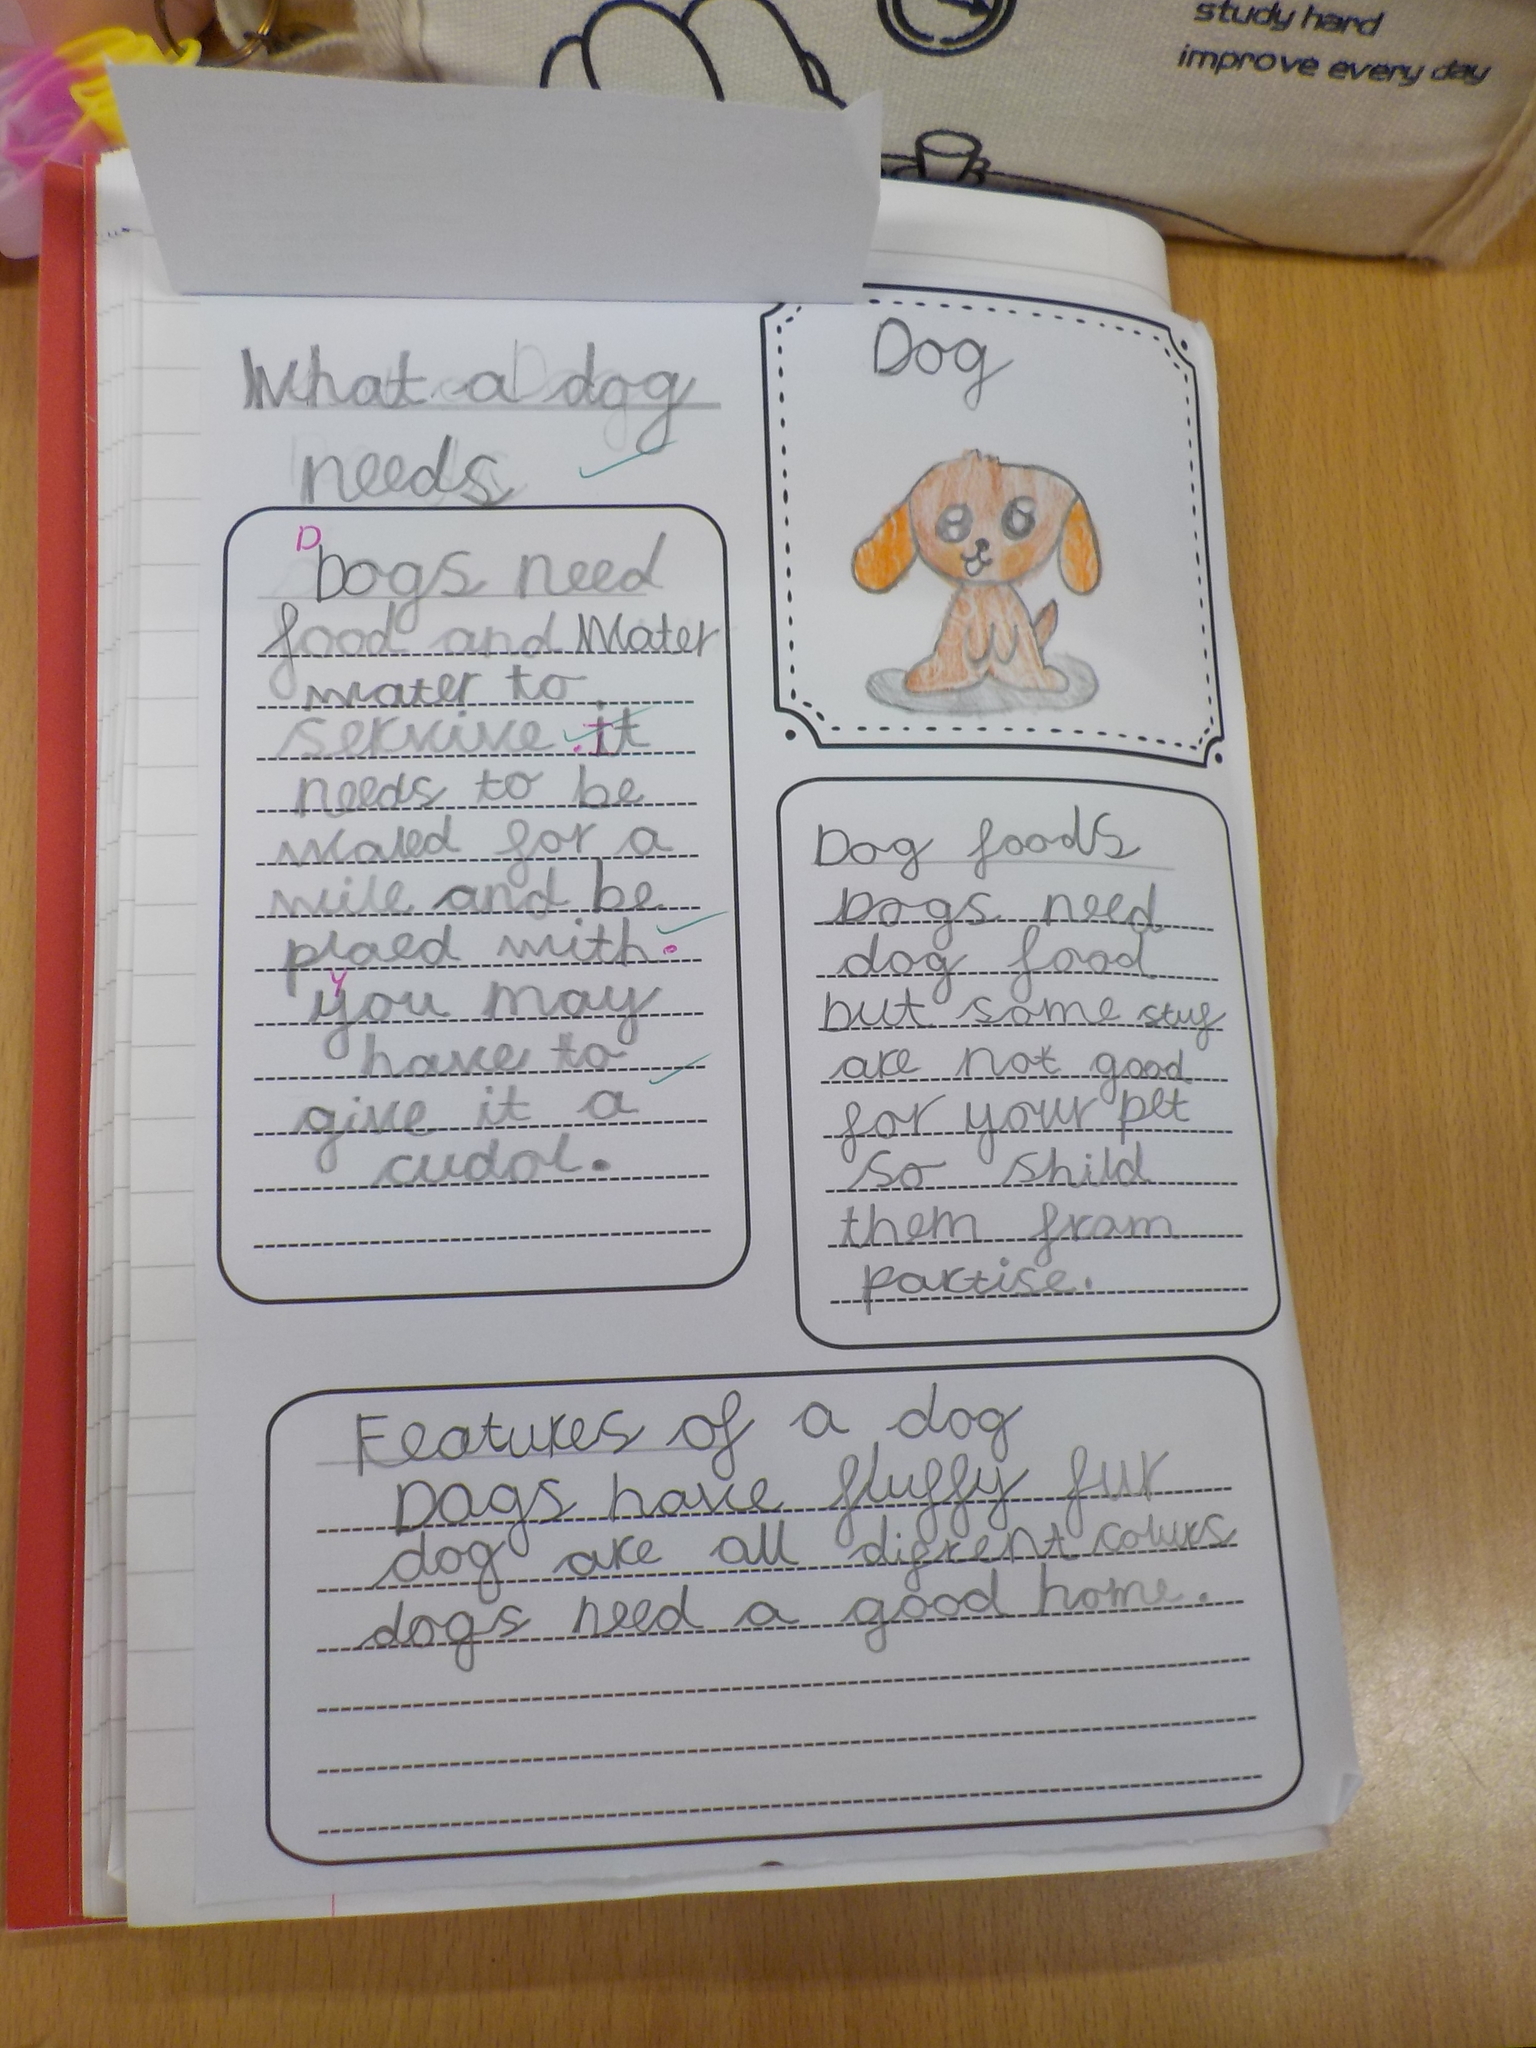 study hard
improve every day
What a dog
needs
Dog
D
Dogs need
food and Water
water to
servive. it
needs to be
waled for a
wile and be
plaed with.
y
you may
have to
give it a
cudol.
Dog foods
Dogs need
dog food
but some stuf
are not good
for your pet
so shild
them fram
partise.
Features of a dog
Dogs have fluffy fur
dog are all difrent colurs
dogs need a good home.